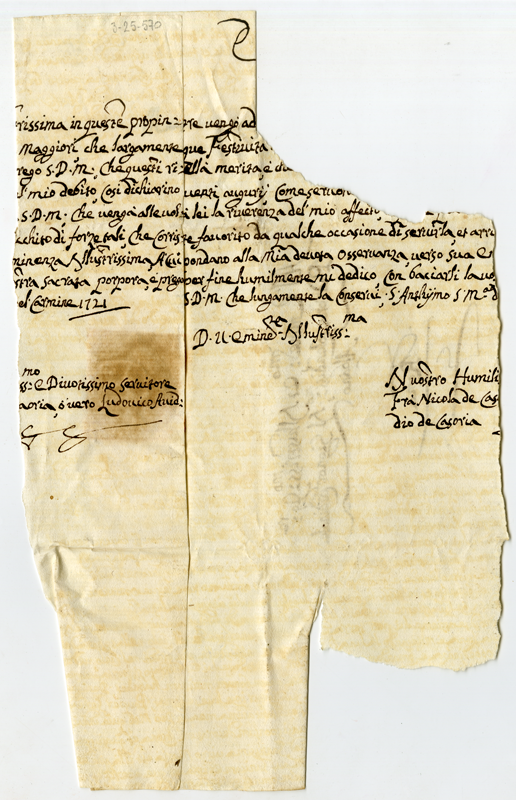 3-25-570
rissima in queste propin= re vengo ad
Maggiori che largamente que Festività
rego S. D. M. Che questi ri ella merita e d
l mio debito Così dichiarino uenti augurij Come seruo
S. D. M. Che venga alle vol lei la riuerenza del mio affecto
cchito di forze tali, che Corris te fauorito da qualche occasione di seruirla et arri
minenza Illustrissima A Cui pondano alla Mia deuota osseruanza, uerso Sua E
stra Sacrata porpora, e prego per fine humilmente mi dedico Con baciarli la
el Carmine 1721 S. D. M. Che lungamente la Conserui, S. Anthijmo S. M.
D. V. Emine. Illustriss: ma
mo
ss: e Diuotissimo Seruitore
Nuostro Humili
aoria, ò uero Ludouico Auid:
Frà Nicola de Cas
dio de Casoria